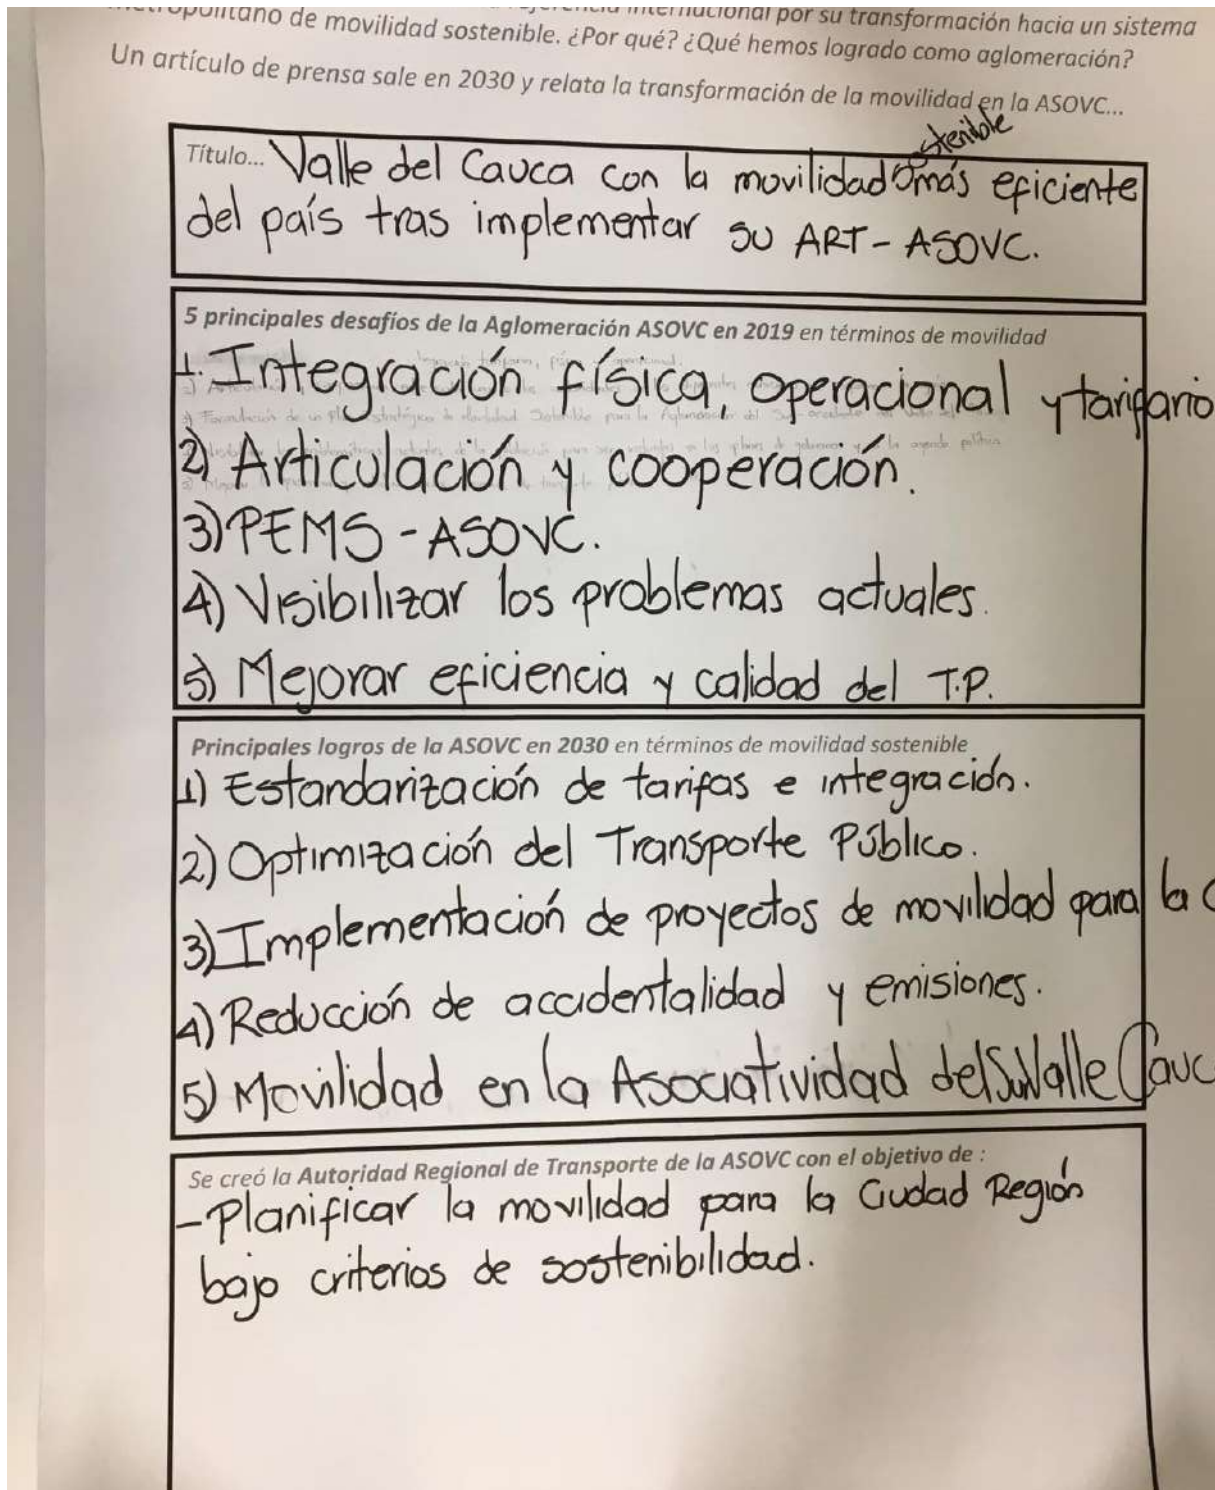 internacional por su transformación hacia un sistema
de movilidad sostenible. ¿Por qué? ¿Qué hemos logrado como aglomeración?
Un artículo de prensa sale en 2030 y relata la transformación de la movilidad en la ASOVC...
sostenible
Título... Valle del Cauca con la movilidad más eficiente
del país tras implementar su ART - ASOVC.
5 principales desafíos de la Aglomeración ASOVC en 2019 en términos de movilidad
1. Integración física, operacional y tarifario
2) Articulación y cooperación.
3) PEMS - ASOVC.
4) Visibilizar los problemas actuales.
5) Mejorar eficiencia y calidad del T.P.
Principales logros de la ASOVC en 2030 en términos de movilidad sostenible
1) Estandarización de tarifas e integración.
2) Optimización del Transporte Público.
3) Implementación de proyectos de movilidad para la
4) Reducción de accidentalidad y emisiones.
5) Movilidad en la Asociatividad del Sur Valle Cauc
Se creó la Autoridad Regional de Transporte de la ASOVC con el objetivo de :
- Planificar la movilidad para la Ciudad Región
bajo criterios de sostenibilidad.